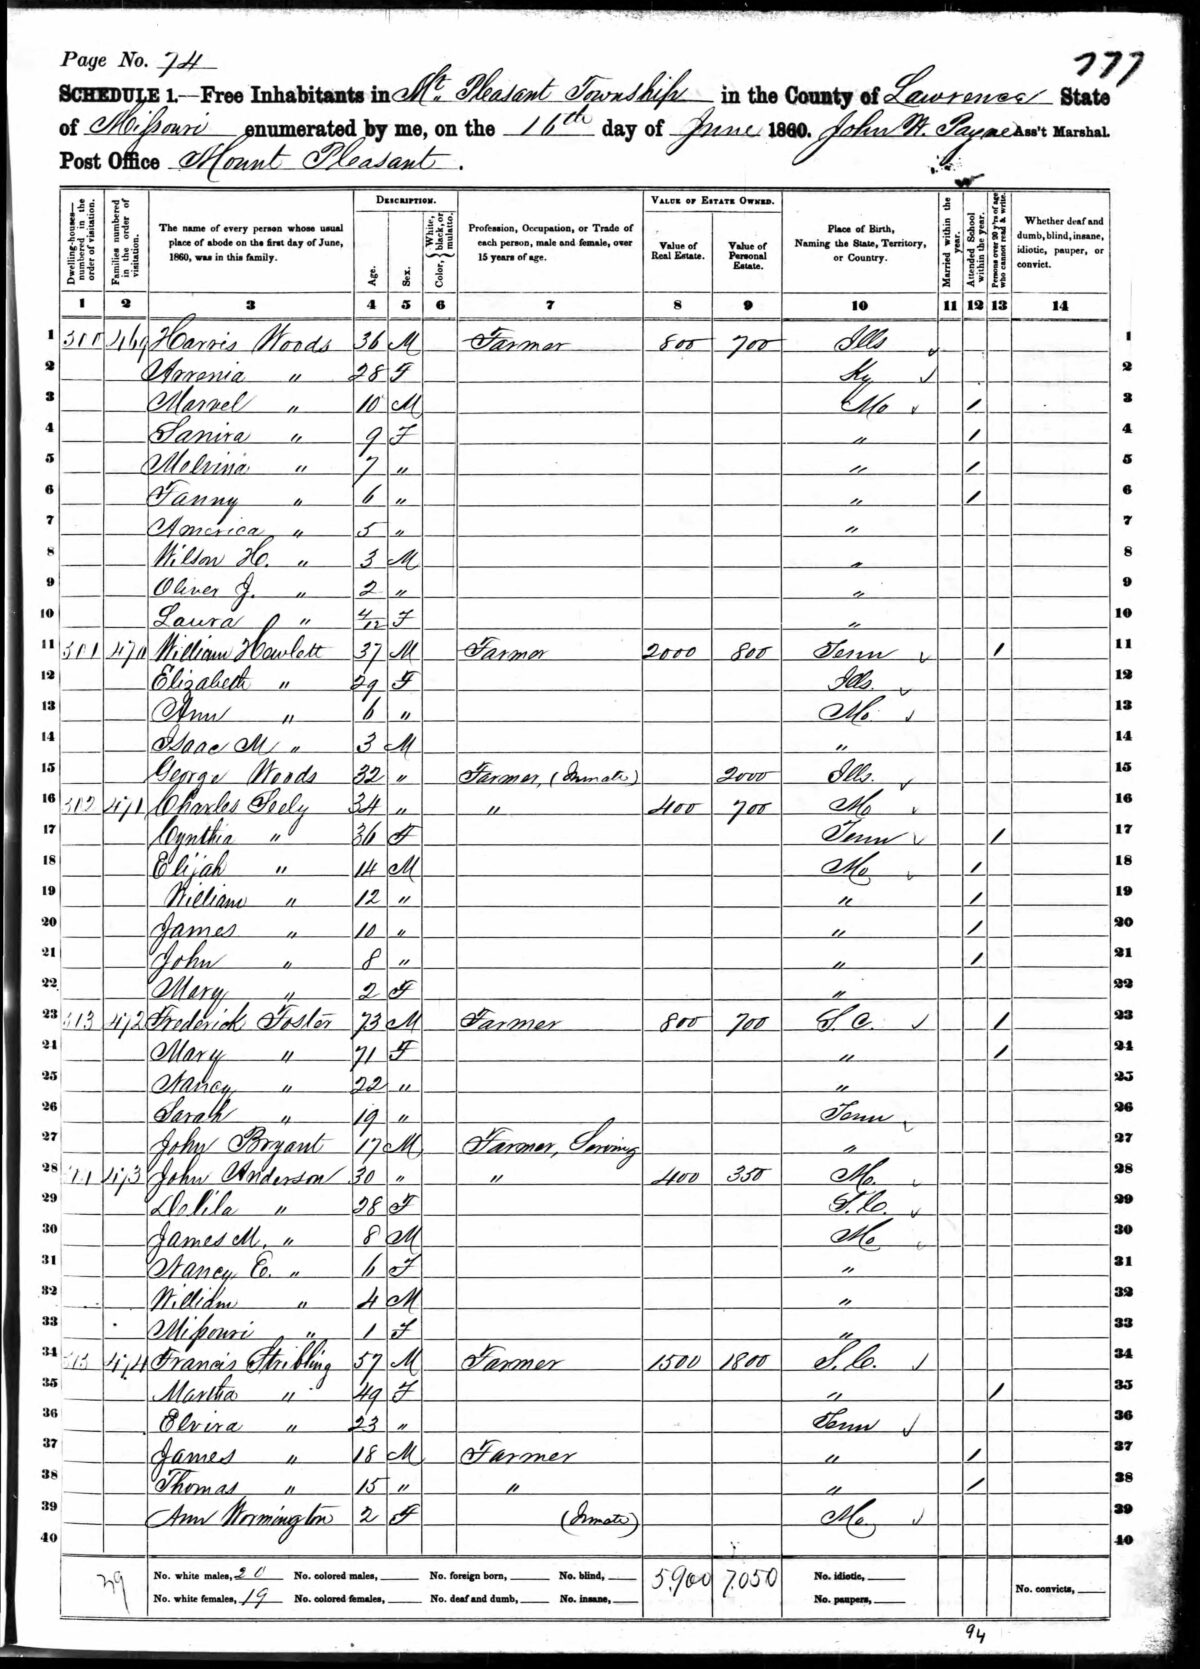 Page No. 74
777
SCHEDULE 1.—Free Inhabitants in Mt. Pleasant Township in the County of Lawrence State
of Missouri enumerated by me, on the 16th day of June 1860. John W. Payne Ass't Marshal.
Post Office Mount Pleasant.
Dwelling-houses—numbered in the order of visitation. Families numbered in the order of visitation. The name of every person whose usual place of abode on the first day of June, 1860, was in this family. DESCRIPTION. Age. Sex. Color, {White, black, or mulatto. Profession, Occupation, or Trade of each person, male and female, over 15 years of age. VALUE OF ESTATE OWNED. Value of Real Estate. Value of Personal Estate. Place of Birth, Naming the State, Territory, or Country. Married within the year. Attended School within the year. Persons over 20 y'rs of age who cannot read & write. Whether deaf and dumb, blind, insane, idiotic, pauper, or convict.
1 2 3 4 5 6 7 8 9 10 11 12 13 14
1 300 469 Harris Woods 36 M Farmer 800 700 Ills 1
2 Arrenia " 28 F Ky 2
3 Marvel " 10 M Mo / 3
4 Sanira " 9 F " / 4
5 Melvina " 7 " " / 5
6 Fanny " 6 " " / 6
7 America " 5 " " 7
8 Wilson H. " 3 M " 8
9 Oliver J. " 2 " " 9
10 Laura " 4/12 F " 10
11 301 470 William Howlett 37 M Farmer 2000 800 Tenn / 11
12 Elizabeth " 29 F Ills. 12
13 Ann " 6 " Mo 13
14 Isaac M " 3 M " 14
15 George Woods 32 " Farmer, (Inmate) 2000 Ills. 15
16 302 471 Charles Seely 34 " " 400 700 Mo 16
17 Cynthia " 36 F Tenn / 17
18 Elijah " 14 M Mo / 18
19 William " 12 " " / 19
20 James " 10 " " / 20
21 John " 8 " " / 21
22 Mary " 2 F " 22
23 313 472 Frederick Foster 73 M Farmer 800 700 S.C. / 23
24 Mary " 71 F " / 24
25 Nancy " 22 " " 25
26 Sarah " 19 " Tenn 26
27 John Bryant 17 M Farmer, Serving " 27
28 473 John Anderson 30 " " 400 350 M. 28
29 Delila " 28 F S.C. 29
30 James M. " 8 M Mo 30
31 Nancy E. " 6 F " 31
32 William " 4 M " 32
33 Missouri " 1 F " 33
34 474 Francis Stribling 57 M Farmer 1500 1800 S.C. 34
35 Martha " 49 F " / 35
36 Elvira " 23 " Tenn 36
37 James " 18 M Farmer " / 37
38 Thomas " 15 " " " / 38
39 Ann Wormington 2 F (Inmate) Mo 39
40 40
39 No. white males, 20 No. colored males, No. foreign born, No. blind, 5,900 7,050 No. idiotic,
No. white females, 19 No. colored females, No. deaf and dumb, No. insane, No. paupers, No. convicts,
94